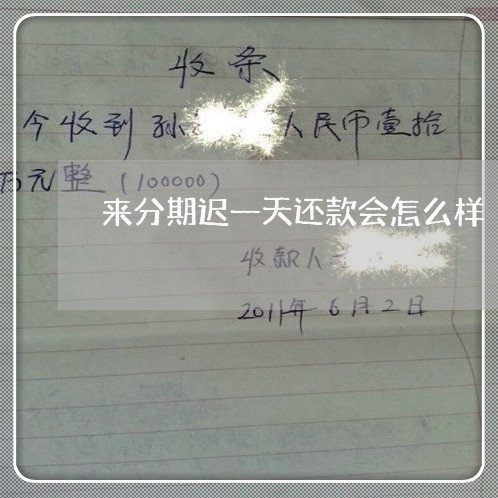 收条
今收到孙 人民币壹拾
万元整（100000）
来分期迟一天还款会怎么样
收款人
2011年6月2日